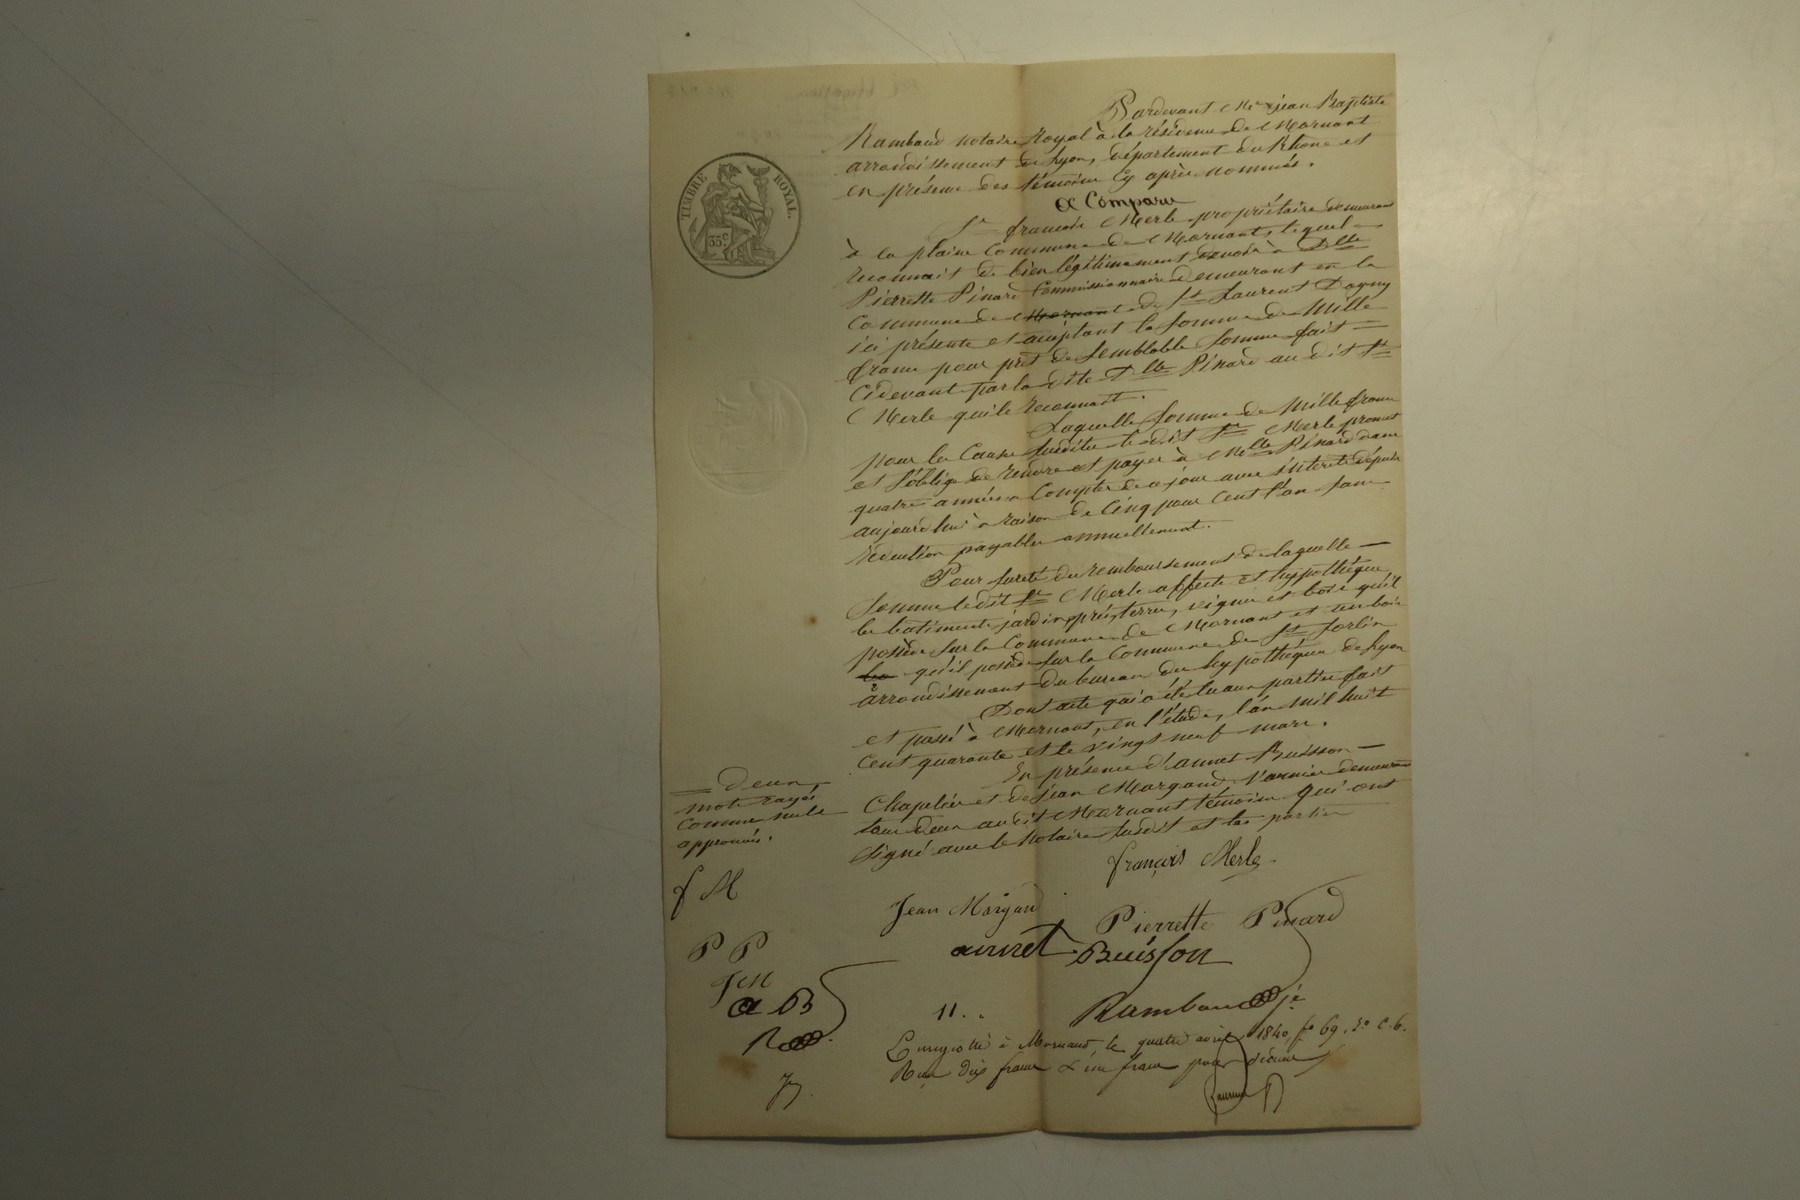 Pardevant Me jean Baptiste
Rambaud notaire Royal à la résidence de Mornant
arrondissement de Lyon, département du Rhône et
en présence des témoins Cy après nommés.
a Comparu
TIMBRE ROYAL.
35 c
Sr francois Merle propriétaire demeurant
à la plaine Commune de Mornant, lequel
reconnait de bien légitimement devoir à Dlle
Pierrette Pinard Commissionnaire demeurant en la
Commune de Mornant de St Laurent Dagny
ici présente et acceptant la somme de Mille
francs pour prêt de semblable somme fait
Cidevant par la dite Dlle Pinard au dit Sr
Merle qui le reconnait.
Laquelle somme de Mille francs
pour les Causes susdites le dit Sr Merle promet
et s'oblige de rendre et payer à Mlle Pinard dans
quatre années à Compter de ce jour avec intérêts depuis
aujourd'hui à raison de Cinq pour Cent l'an sans
réduction payables annuellement.
Pour sureté du remboursement de laquelle
somme le dit Sr Merle affecte et hypothèque
les batiments, jardin, prés, terres, vignes et bois qu'il
possède sur la Commune de Mornant et un bois
qu'il possède sur la Commune de St Sorlin
arrondissement du bureau des hypothèques de Lyon
Dont acte qui a été lu aux parties fait
et passé à Mornant, en l'étude, l'an mil huit
Cent quarante et le vingt neuf mars.
En présence d'annet Buisson
Chapelier et de Jean Morgand demeurant
tous deux au dit Mornant témoins qui ont
signé avec le Notaire susdit et les parties
Deux
mots rayés
comme nuls
approuvés.
françois Merle
f M
Jean Morgand
Pierrette Pinard
P P
annet Buisson
J M
a B
11..
Rambaud je
R
Enregistré à Mornant, le quatre avril 1840, fo 69, Ro C. 6.
Reçu dix francs & un franc pour décime